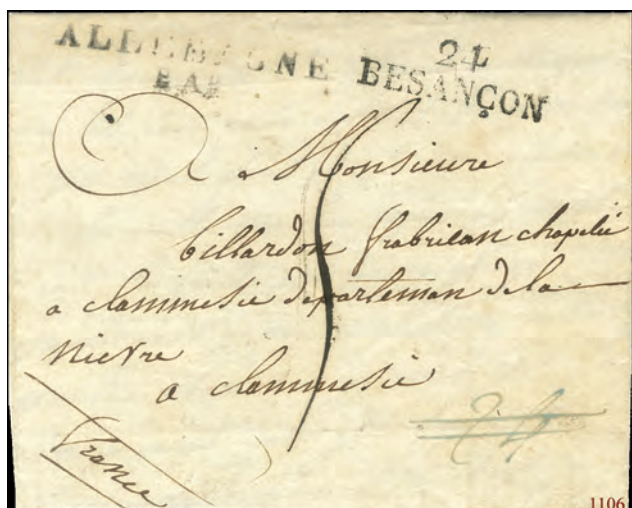 ALLEMAGNE
PAR
24
BESANÇON
A Monsieure
billardon frabrican chapelié
a clammesie departeman de la
nievre
a clammesie
France
24
1106